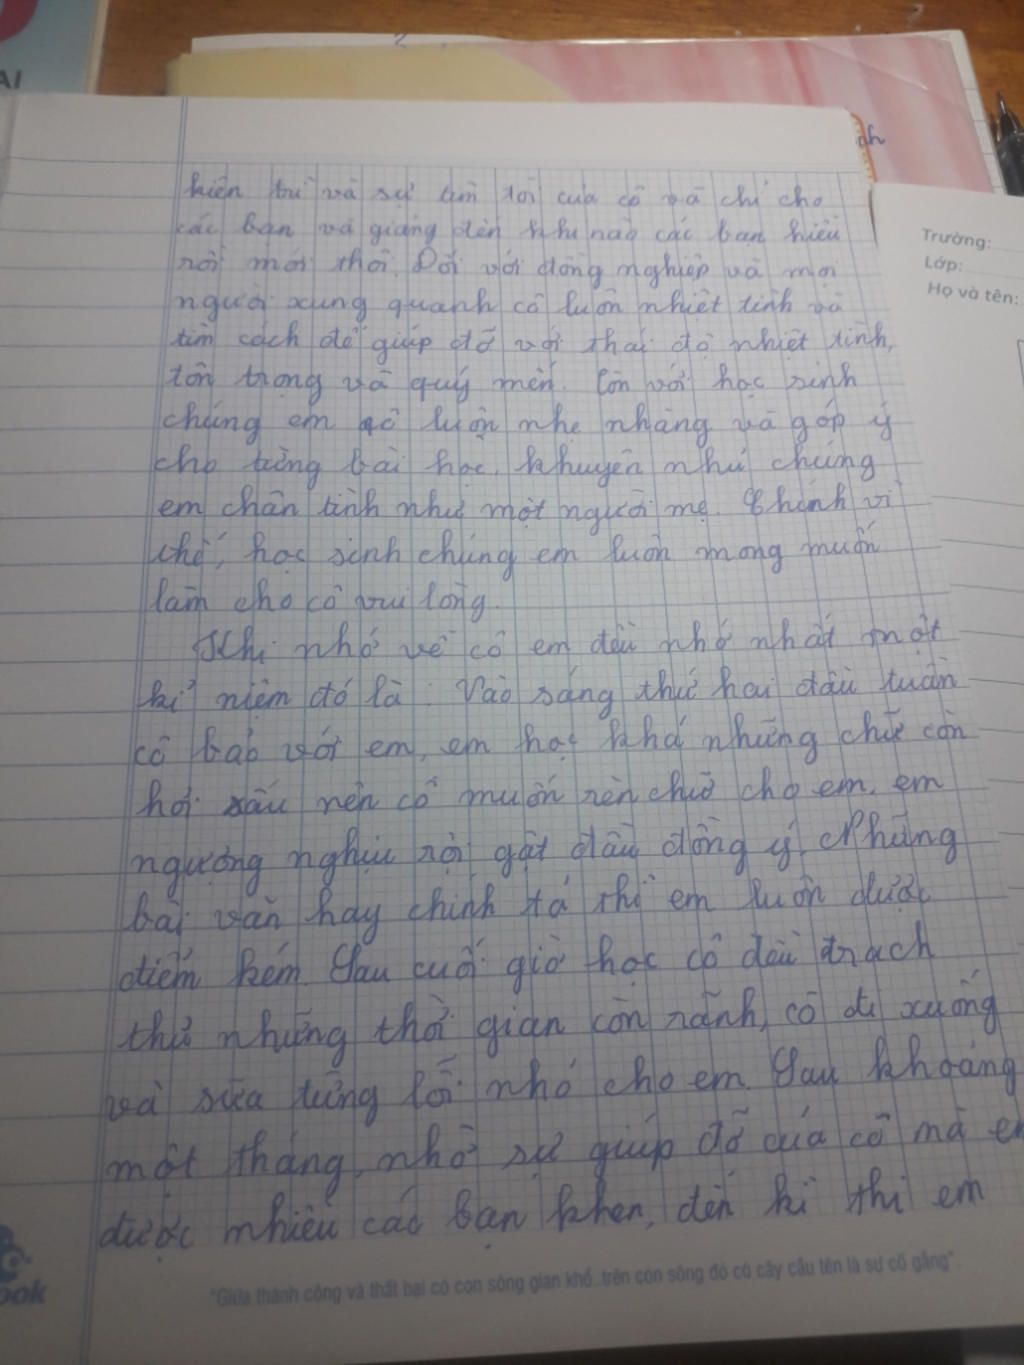 AI
nh
Trường:
Lớp:
Họ và tên:
kiên trì và sự tìm tòi của cô và chỉ cho
các bạn và giảng đến khi nào các bạn hiểu
rồi mới thôi. Đối với đồng nghiệp và mọi
người xung quanh cô luôn nhiệt tình và
tìm cách để giúp đỡ với thái độ nhiệt tình,
tôn trọng và quý mến. Còn với học sinh
chúng em cô luôn nhẹ nhàng và góp ý
cho từng bài học, khuyên nhủ chúng
em chân tình như một người mẹ. Chính vì
thế, học sinh chúng em luôn mong muốn
làm cho cô vui lòng.
Khi nhớ về cô em đều nhớ nhất một
kỉ niệm đó là: Vào sáng thứ hai đầu tuần
cô bảo với em, em học khá nhưng chữ còn
hơi xấu nên cô muốn rèn chữ cho em, em
ngượng nghịu rồi gật đầu đồng ý. Những
bài văn hay chính tả thì em luôn được
điểm kém. Sau cuối giờ học cô đều
thủ những thời gian còn rảnh, cô đi xuống
và sửa từng lỗi nhỏ cho em. Sau khoảng
một tháng, nhờ sự giúp đỡ của cô mà e
được nhiều các bạn khen, đến kì thi em
"Giữa thành công và thất bại có con sông gian khổ..trên con sông đó có cây cầu tên là sự cố gắng".
ook